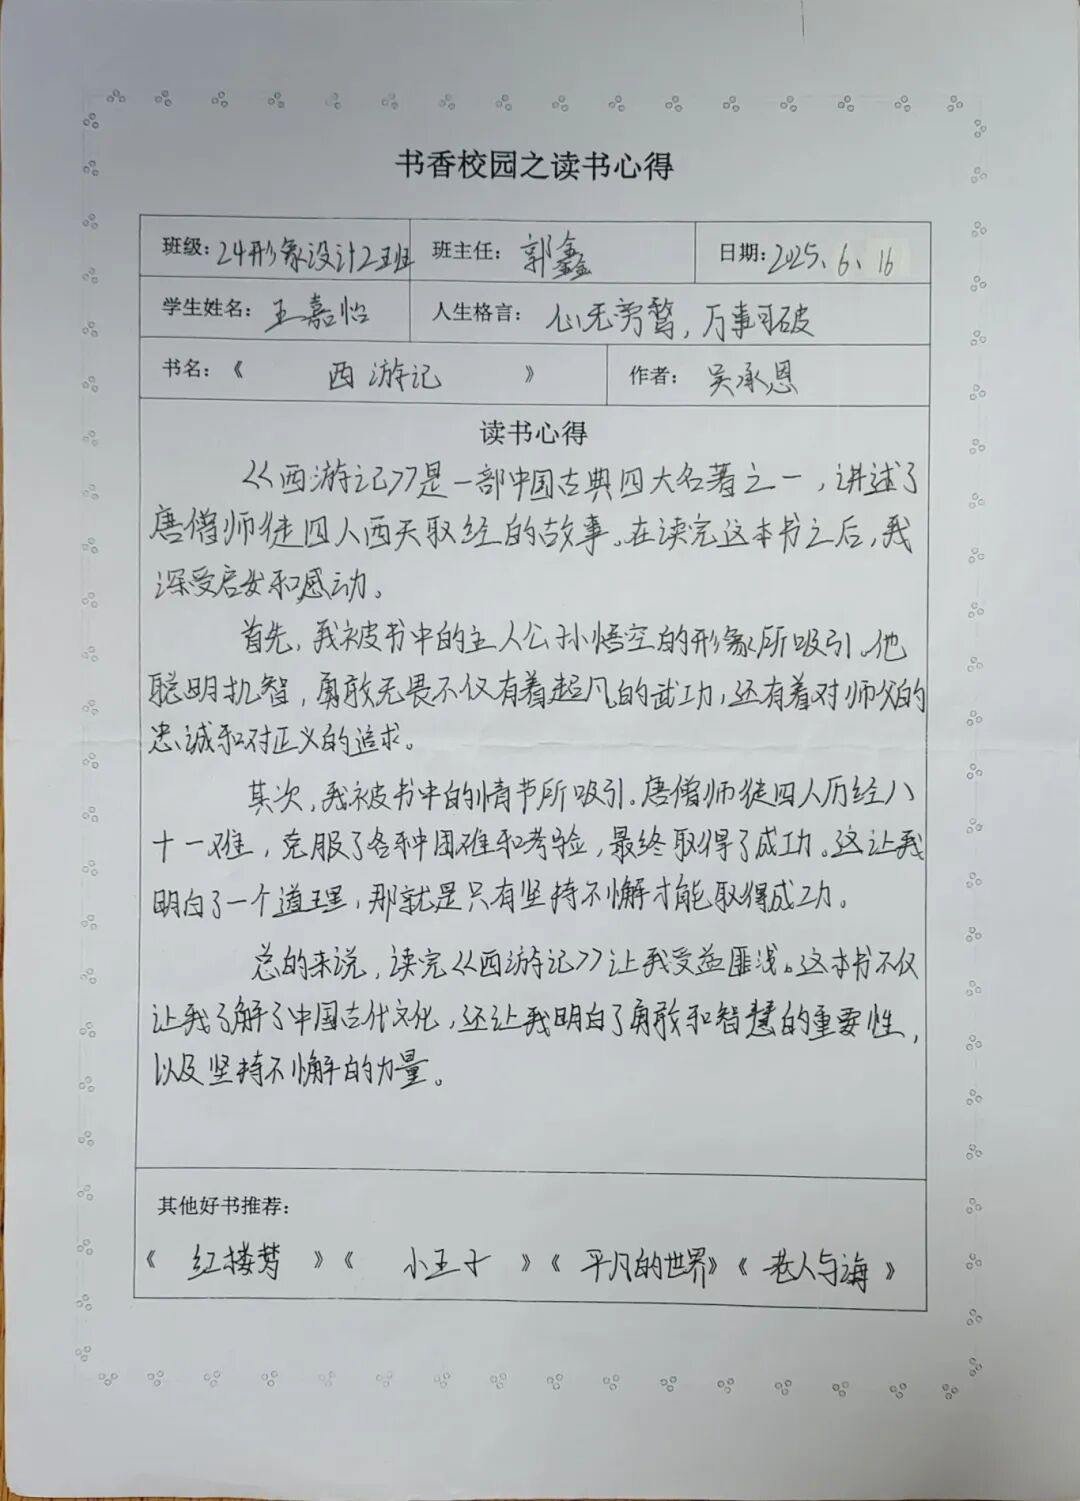 书香校园之读书心得
班级：24形象设计2班 班主任：郭鑫 日期：2025.6.16
学生姓名：王嘉怡 人生格言：心无旁骛，万事可破
书名：《 西游记 》 作者：吴承恩
读书心得
《西游记》是一部中国古典四大名著之一，讲述了
唐僧师徒四人西天取经的故事。在读完这本书之后，我
深受启发和感动。
首先，我被书中的主人公孙悟空的形象所吸引。他
聪明机智，勇敢无畏不仅有着超凡的武功，还有着对师父的
忠诚和对正义的追求。
其次，我被书中的情节所吸引。唐僧师徒四人历经八
十一难，克服了各种困难和考验，最终取得了成功。这让我
明白了一个道理，那就是只有坚持不懈才能取得成功。
总的来说，读完《西游记》让我受益匪浅。这本书不仅
让我了解了中国古代文化，还让我明白了勇敢和智慧的重要性，
以及坚持不懈的力量。
其他好书推荐：
《 红楼梦 》《 小王子 》《 平凡的世界》《 老人与海 》